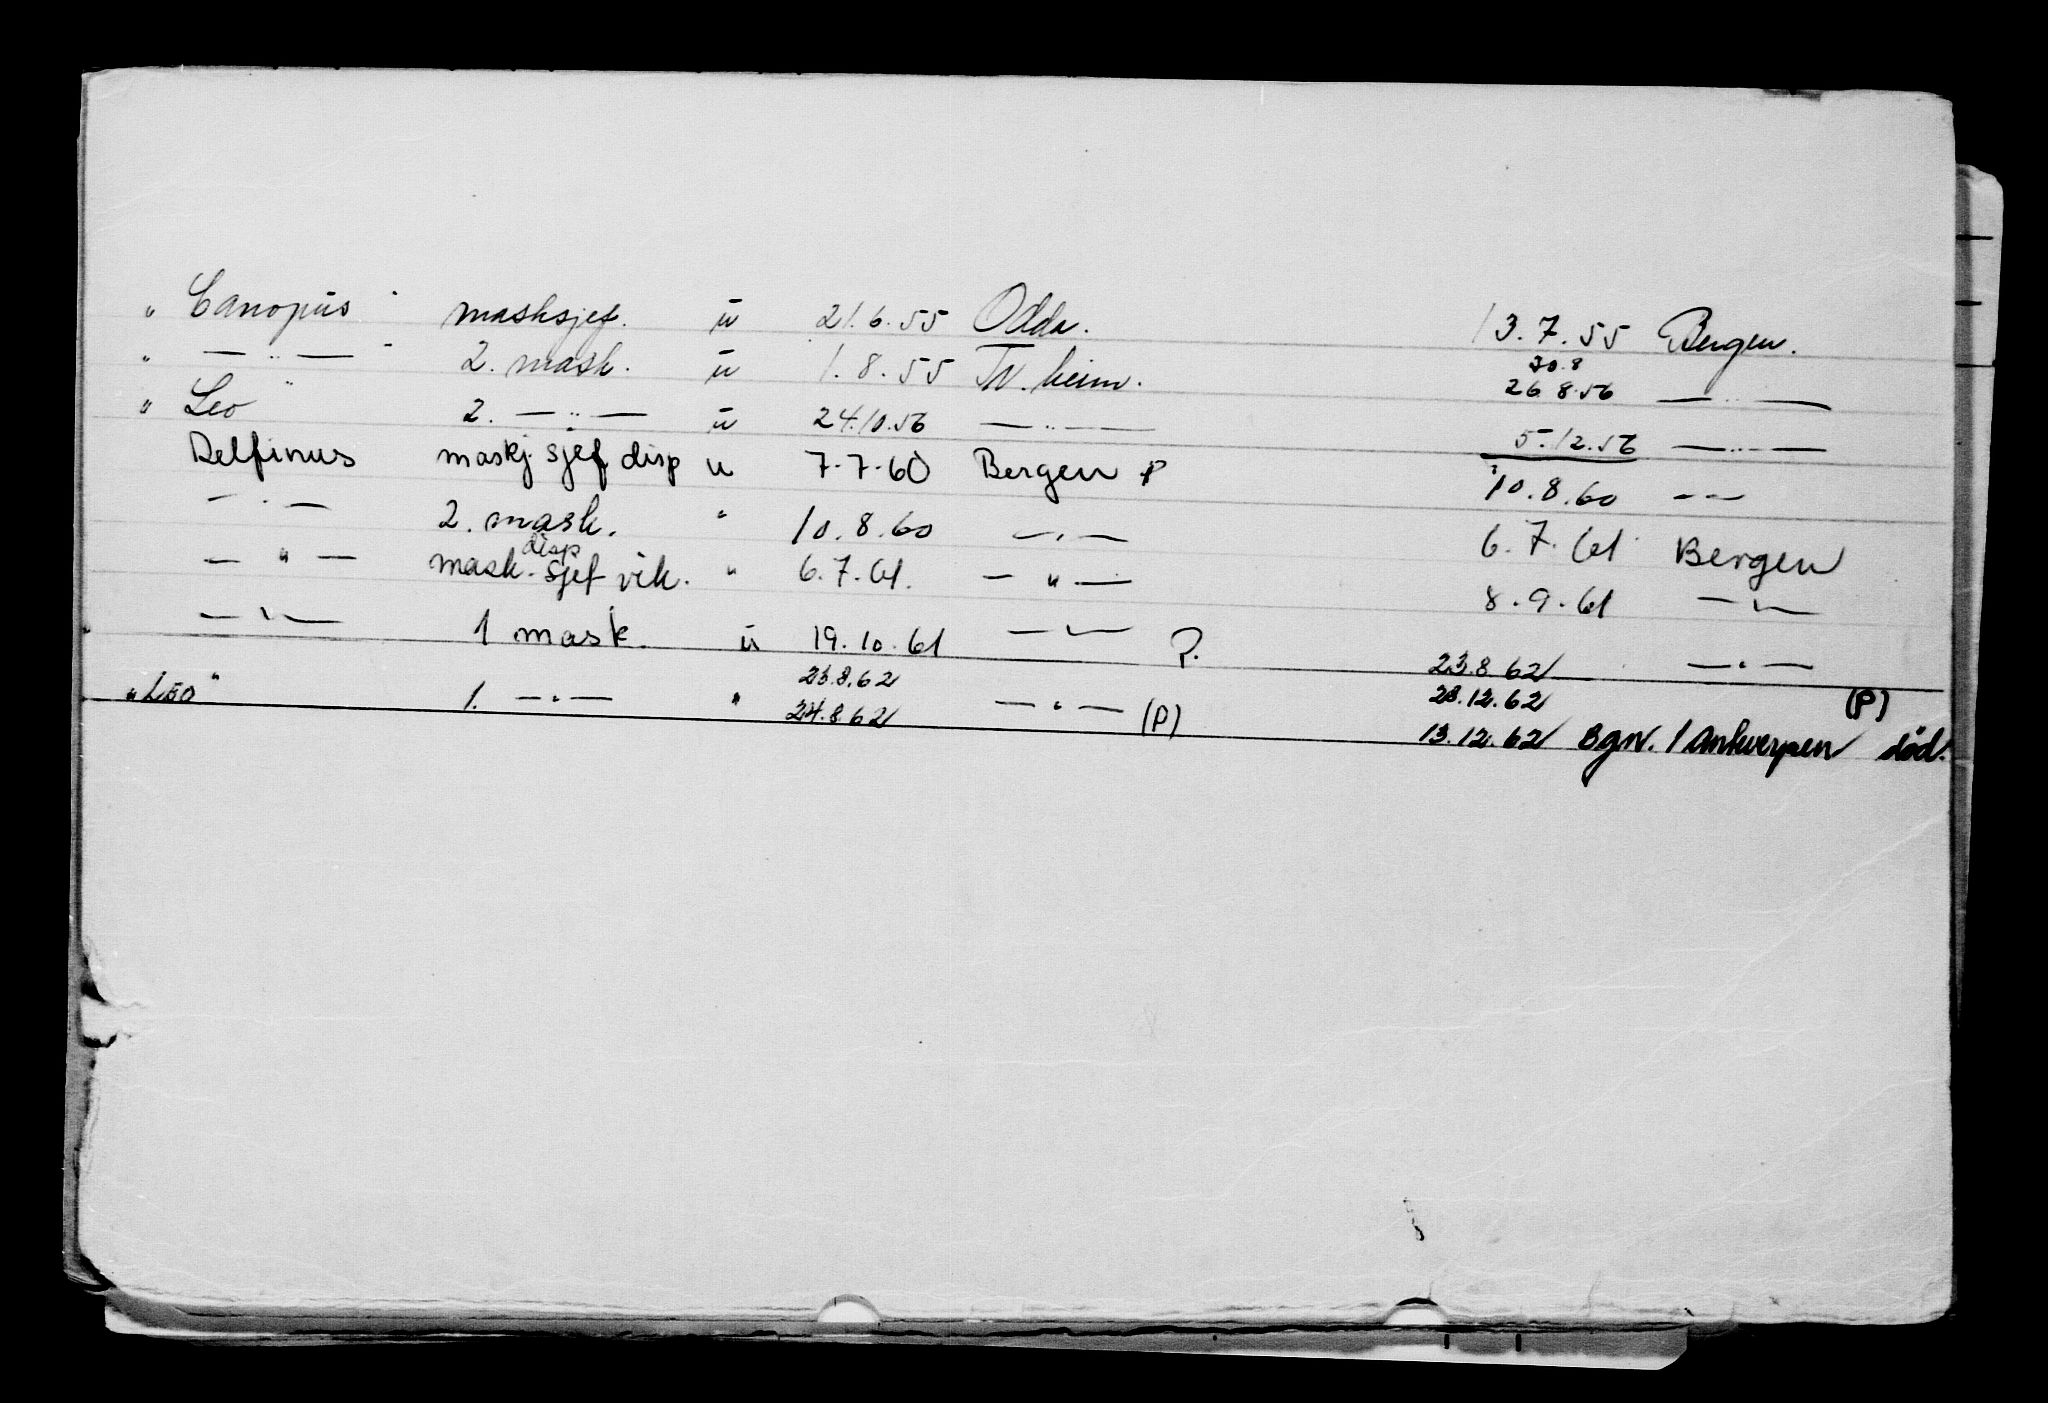 " Canopus " masksjef. u 21.6.55 Odda. 13.7.55 Bergen.
" — " — " 2. mask. u 1.8.55 Tr.heim. 30.8 26.8.56 — " —
" Leo " 2. — " — u 24.10.56 — " — 5.12.56 — " —
Delfinus maskj. sjef disp u 7.7.60 Bergen P 10.8.60 — —
— " — 2. mask. " 10.8.60 — " — 6.7.61 Bergen
— " — mask. disp sjef vik. " 6.7.61. — " — 8.9.61 — " —
— " — 1 mask. u 19.10.61 — " — P. 23.8.62 — " —
23.8.62 28.12.62 (P)
"Leo" 1. — " — " 24.8.62 — " — (P) 13.12.62 Bgn. / Antwerpen död.